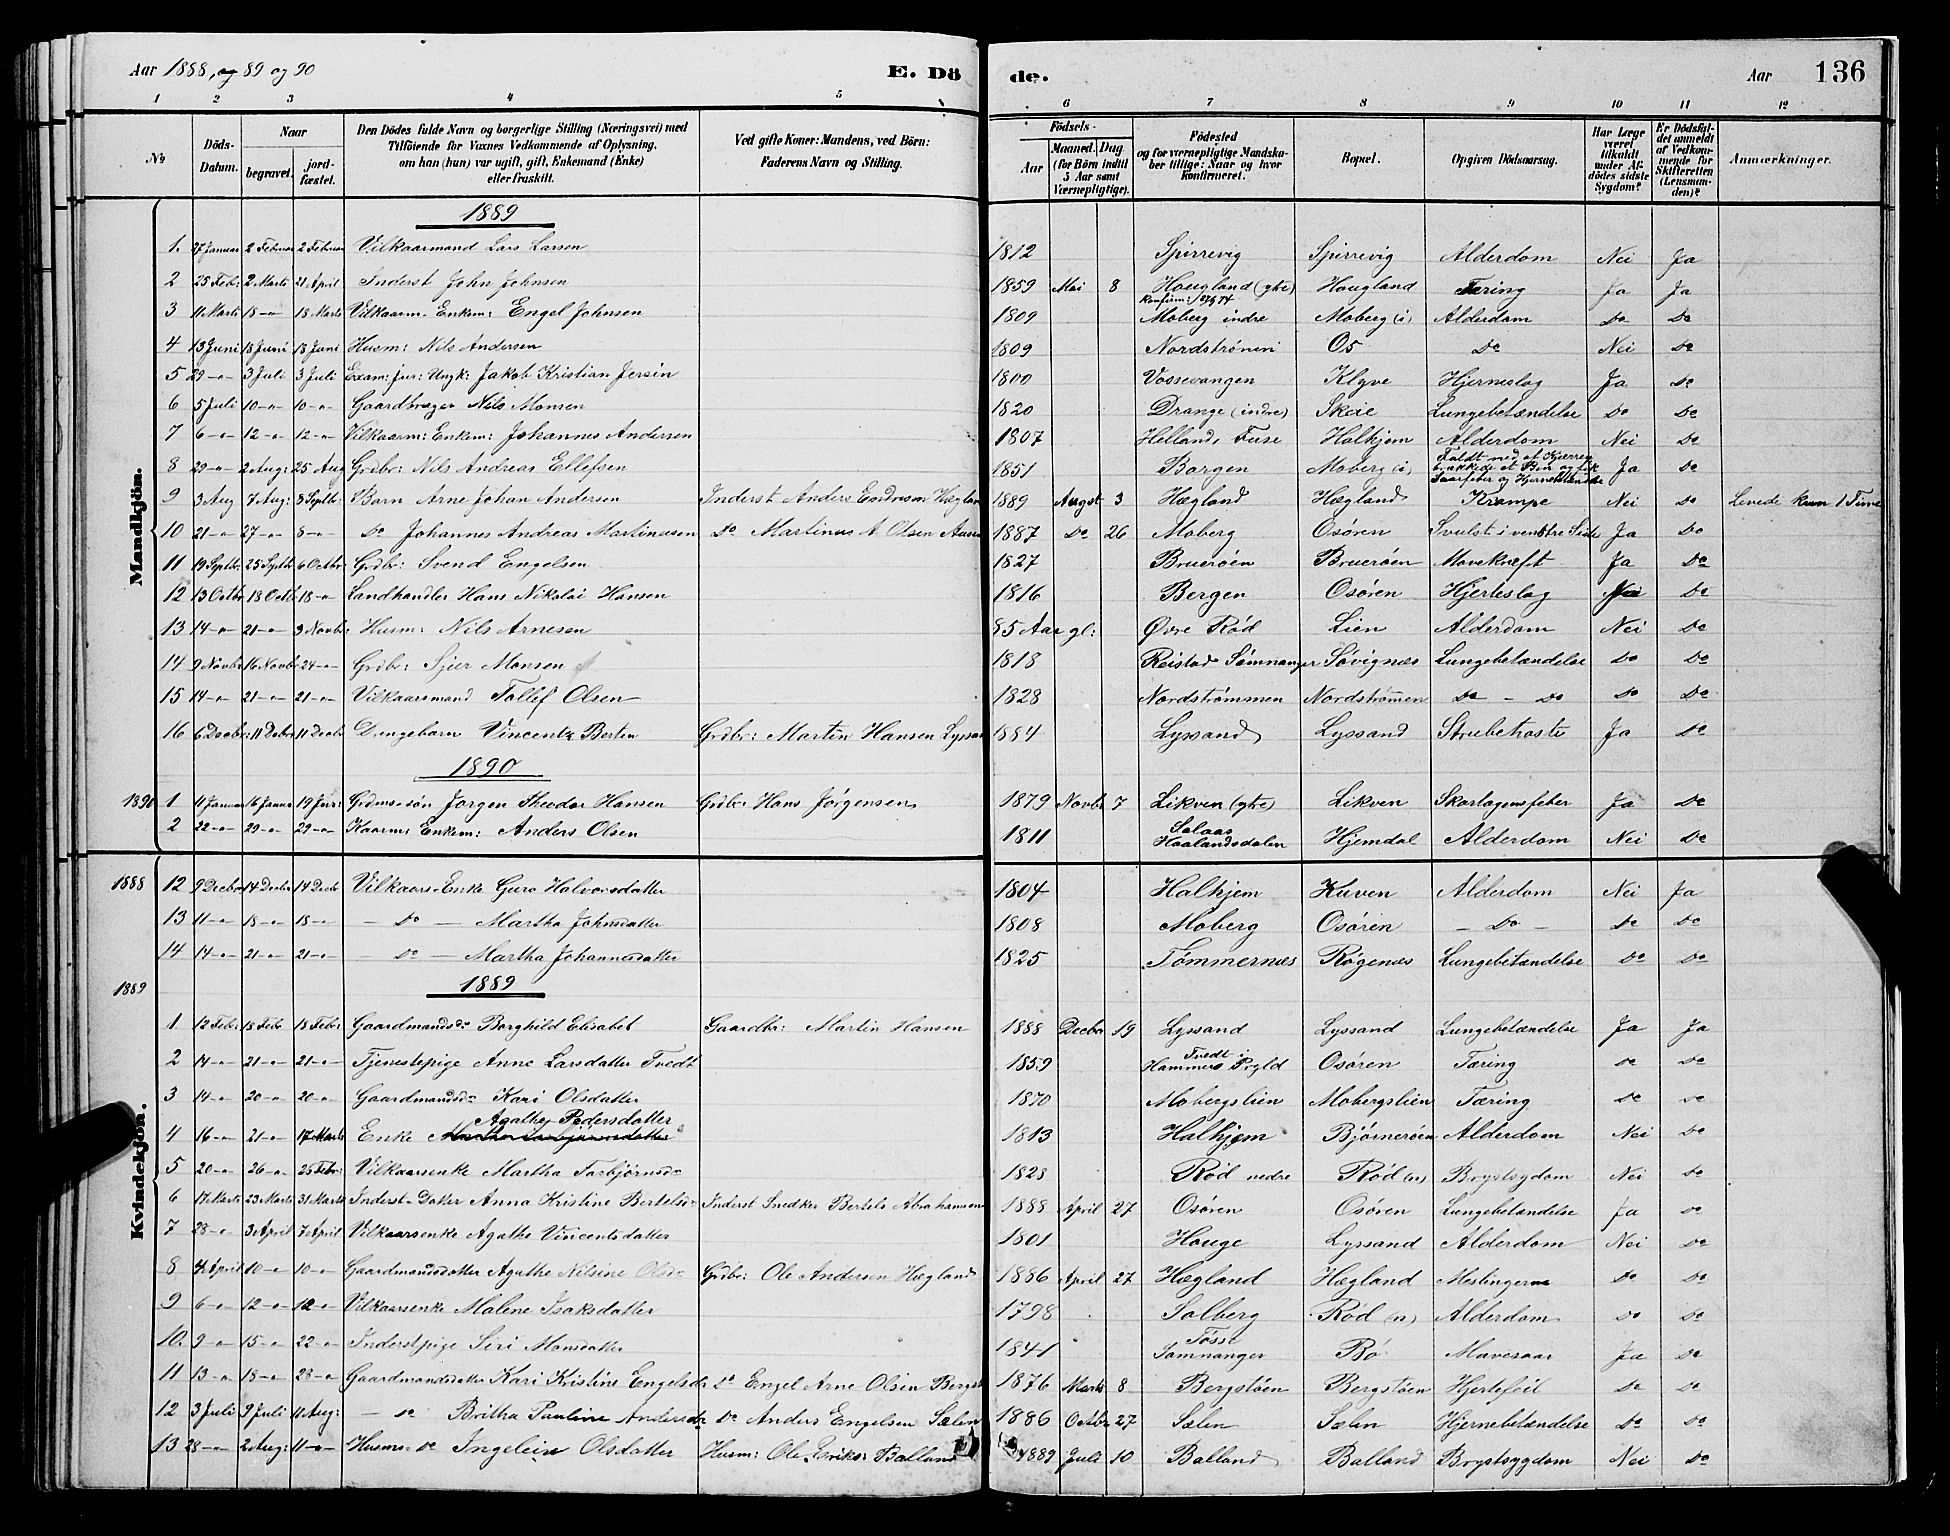 Aar 1888, og 89 og 90 E. Döde. Aar 136
1 2 3 4 5 6 7 8 9 10 11 12
No Döds-Datum. Naar begravet. jordfæstet. Den Dödes fulde Navn og borgerlige Stilling (Næringsvei) med Tilföiende for Voxnes Vedkommende af Oplysning, om han (hun) var ugift, gift, Enkemand (Enke) eller fraskilt. Ved gifte Koner: Mandens, ved Börn: Faderens Navn og Stilling. Födsels- Aar Maaned. Dag (for Börn indtil 5 Aar samt Værnepligtige). Födested og for værnepligtige Mandskaber tillige: Naar og hvor konfirmeret. Bopæl. Opgiven Dödsaarsag. Har Læge været tilkaldt under Afdödes sidste Sygdom? Er Dödsfaldet anmeldt af Vedkommende for Skifteretten (Lensmanden)? Anmærkninger.
Mandkjön.
1889
1. 27 Januar 2 Februar 2 Februar Vilkaarmand Lars Larsen 1812 Spirrevig Spirrevig Alderdom Nei Ja
2 25 Febr 2 Marts 21 April Inderst John Johnsen 1859 Mai 8 Hougland (ytre) Hougland Tæring Ja Ja
3 11 Marts 18 -"- 18 Marts Vilkaarm. Enkem: Engel Johnsen 1809 Moberg indre Moberg (i) Alderdom Do Do
4 13 Juni 18 Juni 18 Juni Husm: Nils Andersen 1809 Nordströnen Os Do Nei Do
5 29 -"- 3 Juli 3 Juli Exam: jur: Ungk: Jakob Kristian Jersin 1800 Vossevangen Klyve Hjerneslag Ja Do
6 5 Juli 10 -"- 10 -"- Gaardbruger Nils Monsen 1820 Drange (indre) Skeie Lungebetændelse Do Do
7 6 -"- 12 -"- 12 -"- Vilkaarm: Enkem: Johannes Andersen 1807 Helland, Fuse Halhjem Alderdom Nei Do
8 29 -"- 2 Aug: 25 Aug Grdbr: Nils Andreas Ellefsen 1851 Borgen Moberg (i) Faldt ned at Kjærren brækkede et Ben og fik Saarfeber og Hjernebetændelse Ja Do
9 3 Aug 7 Aug: 8 Septbr: Barn Arne Johan Andersen Inderst Anders Endresen Hægland 1889 August 3 Hægland Hægland Krampe Nei Do Levede kun 1 Time
10 21 -"- 27 -"- 8 -"- Do Johannes Andreas Martinussen Do Martinus A. Olsen 1887 Do 26 Moberg Osören Svulst i venstre Side Ja Do
11 19 Septbr 25 Septb 6 Octbr: Grdbr: Svend Engelsen 1827 Bruerøen Bruerøen Mavekræft Ja Do
12 13 Octbr 18 Octb 18 -"- Landhandler Hans Nikolai Hansen 1816 Bergen Osören Hjerteslag Do
13 14 -"- 21 -"- 3 Novbr Husm: Nils Arnesen 85 Aar gl: Øvre Rød Lien Alderdom Nei Do
14 9 Novbr 16 Novbr 24 -"- Grdbr: Sjur Monsen 1818 Reistad Sømnanger Søvignæs Lungebetændelse Do Do
15 14 -"- 21 -"- 21 -"- Vilkaarsmand Tollef Olsen 1828 Nordstrømmen Nordstrømmen Do - Do Do Do
16 6 Decbr: 11 Decbr 11 Decbr Drengebarn Vincents Bertin Grdbr: Martin Hansen Lyssand 1884 Lyssand Lyssand Strubehoste Ja Do
1890
1890 1 11 Januar 16 Januar 19 Janr: Grdmdssön Jørgen Theodor Hansen Grdbr Hans Jørgensen 1879 Novbr 7 Likven (ytre) Likven Skarlagensfeber Ja Do
2 22 -"- 29 -"- 29 -"- Kaarm: Enkem: Anders Olsen 1811 Solaas Haalandsdalen Hjemdal Alderdom Nei Do
Kvindekjön.
1888 12 9 Decbr 14 Decbr 14 Decb Vilkaars-Enke Guro Halvorsdatter 1804 Halhjem Kuven Alderdom Nei Ja
13 11 -"- 18 -"- 18 -"- - Do - Martha Johnsdatter 1808 Moberg Osören - Do - Do Do
14 14 -"- 21 -"- 21 -"- - Do - Martha Johannesdatter 1825 Tømmernæs Røgenæs Lungebetændelse Do Do
1889 1889
1 12 Febr 18 Feb 18 Febr Gaardmandsdr Borghild Elisabet Gaardbr: Martin Hansen 1888 Decbr 19 Lyssand Lyssand Lungebetændelse Ja Ja
2 14 -"- 21 -"- 21 -"- Tjenestepige Anne Larsdatter Tvedt 1859 Tvedt i Hammers Prgld Osören Tæring Do Do
3 14 -"- 20 -"- 20 -"- Gaardmandsdr Kari Olsdatter 1870 Mobergslien Mobergslien Tæring Do Do
Agathe Pedersdatter
4 16 -"- 21 -"- 17 Marts Enke 1813 Halhjem Bjørnerøen Alderdom Nei Do
5 20 -"- 26 -"- 26 Febr: Vilkaarsenke Martha Torbjørnsdr 1828 Rød nedre Rød (n) Brystsygdom Nei Do
6 17 Marts 23 Marts 31 Marts Inderst-Datter Anna Kristine Bertelsdr Inderst Snedker Bertel Abrahamsen 1888 April 27 Osören Osören Lungebetændelse Ja Do
7 28 -"- 3 April 7 April Vilkaarsenke Agathe Vincentsdatter 1801 Houge Lyssand Alderdom Nei Do
8 4 April 10 -"- 10 -"- Gaardmandsdatter Agathe Nilsine Olsdr Grdbr: Ole Andersen Hægland 1886 April 27 Hægland Hægland Meslingerne Do Do
9 6 -"- 12 -"- 12 -"- Vilkaarsenke Malene Isaksdatter 1798 Solberg Rød (n) Alderdom Do Do
10. 9 -"- 15 -"- 22 -"- Inderstpige Siri Monsdatter 1841 Tøsse Samnanger Bø Mavesaar Ja Do
11 13 -"- 18 -"- 28 -"- Gaardmandsdatter Kari Kristine Engelsdr Do Engel Arne Olsen 1876 Marts 8 Bergstøen Bergstøen Hjertefeil Do Do
12 3 Juli 9 Juli 11 Aug: - Do Britha Pauline Andersdr Do Anders Engelsen Sælen 1886 Octbr 27 Sælen Sælen Hjernebetændelse Do Do
13 28 -"- 2 Aug: 11 -"- Husms- Do Ingeleiv Olsdatter Husm: Ole Eriks: Balland 1889 Juli 10 Balland Balland Brystsygdom Nei Do